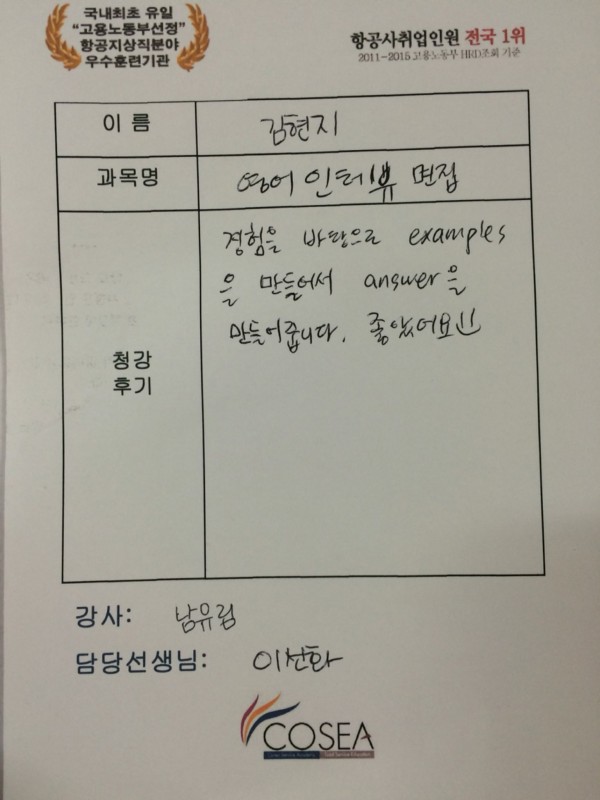 국내최초 유일
"고용노동부선정"
항공지상직분야
우수훈련기관
항공사취업인원 전국 1위
2011-2015 고용노동부 HRD조회 기준
이 름
김현지
과목명
영어 인터뷰 면접
청강
후기
경험을 바탕으로 examples
을 만들어서 answer을
만들어줍니다. 좋았어요!!
강사: 남유림
담당선생님: 이찬화
COSEA